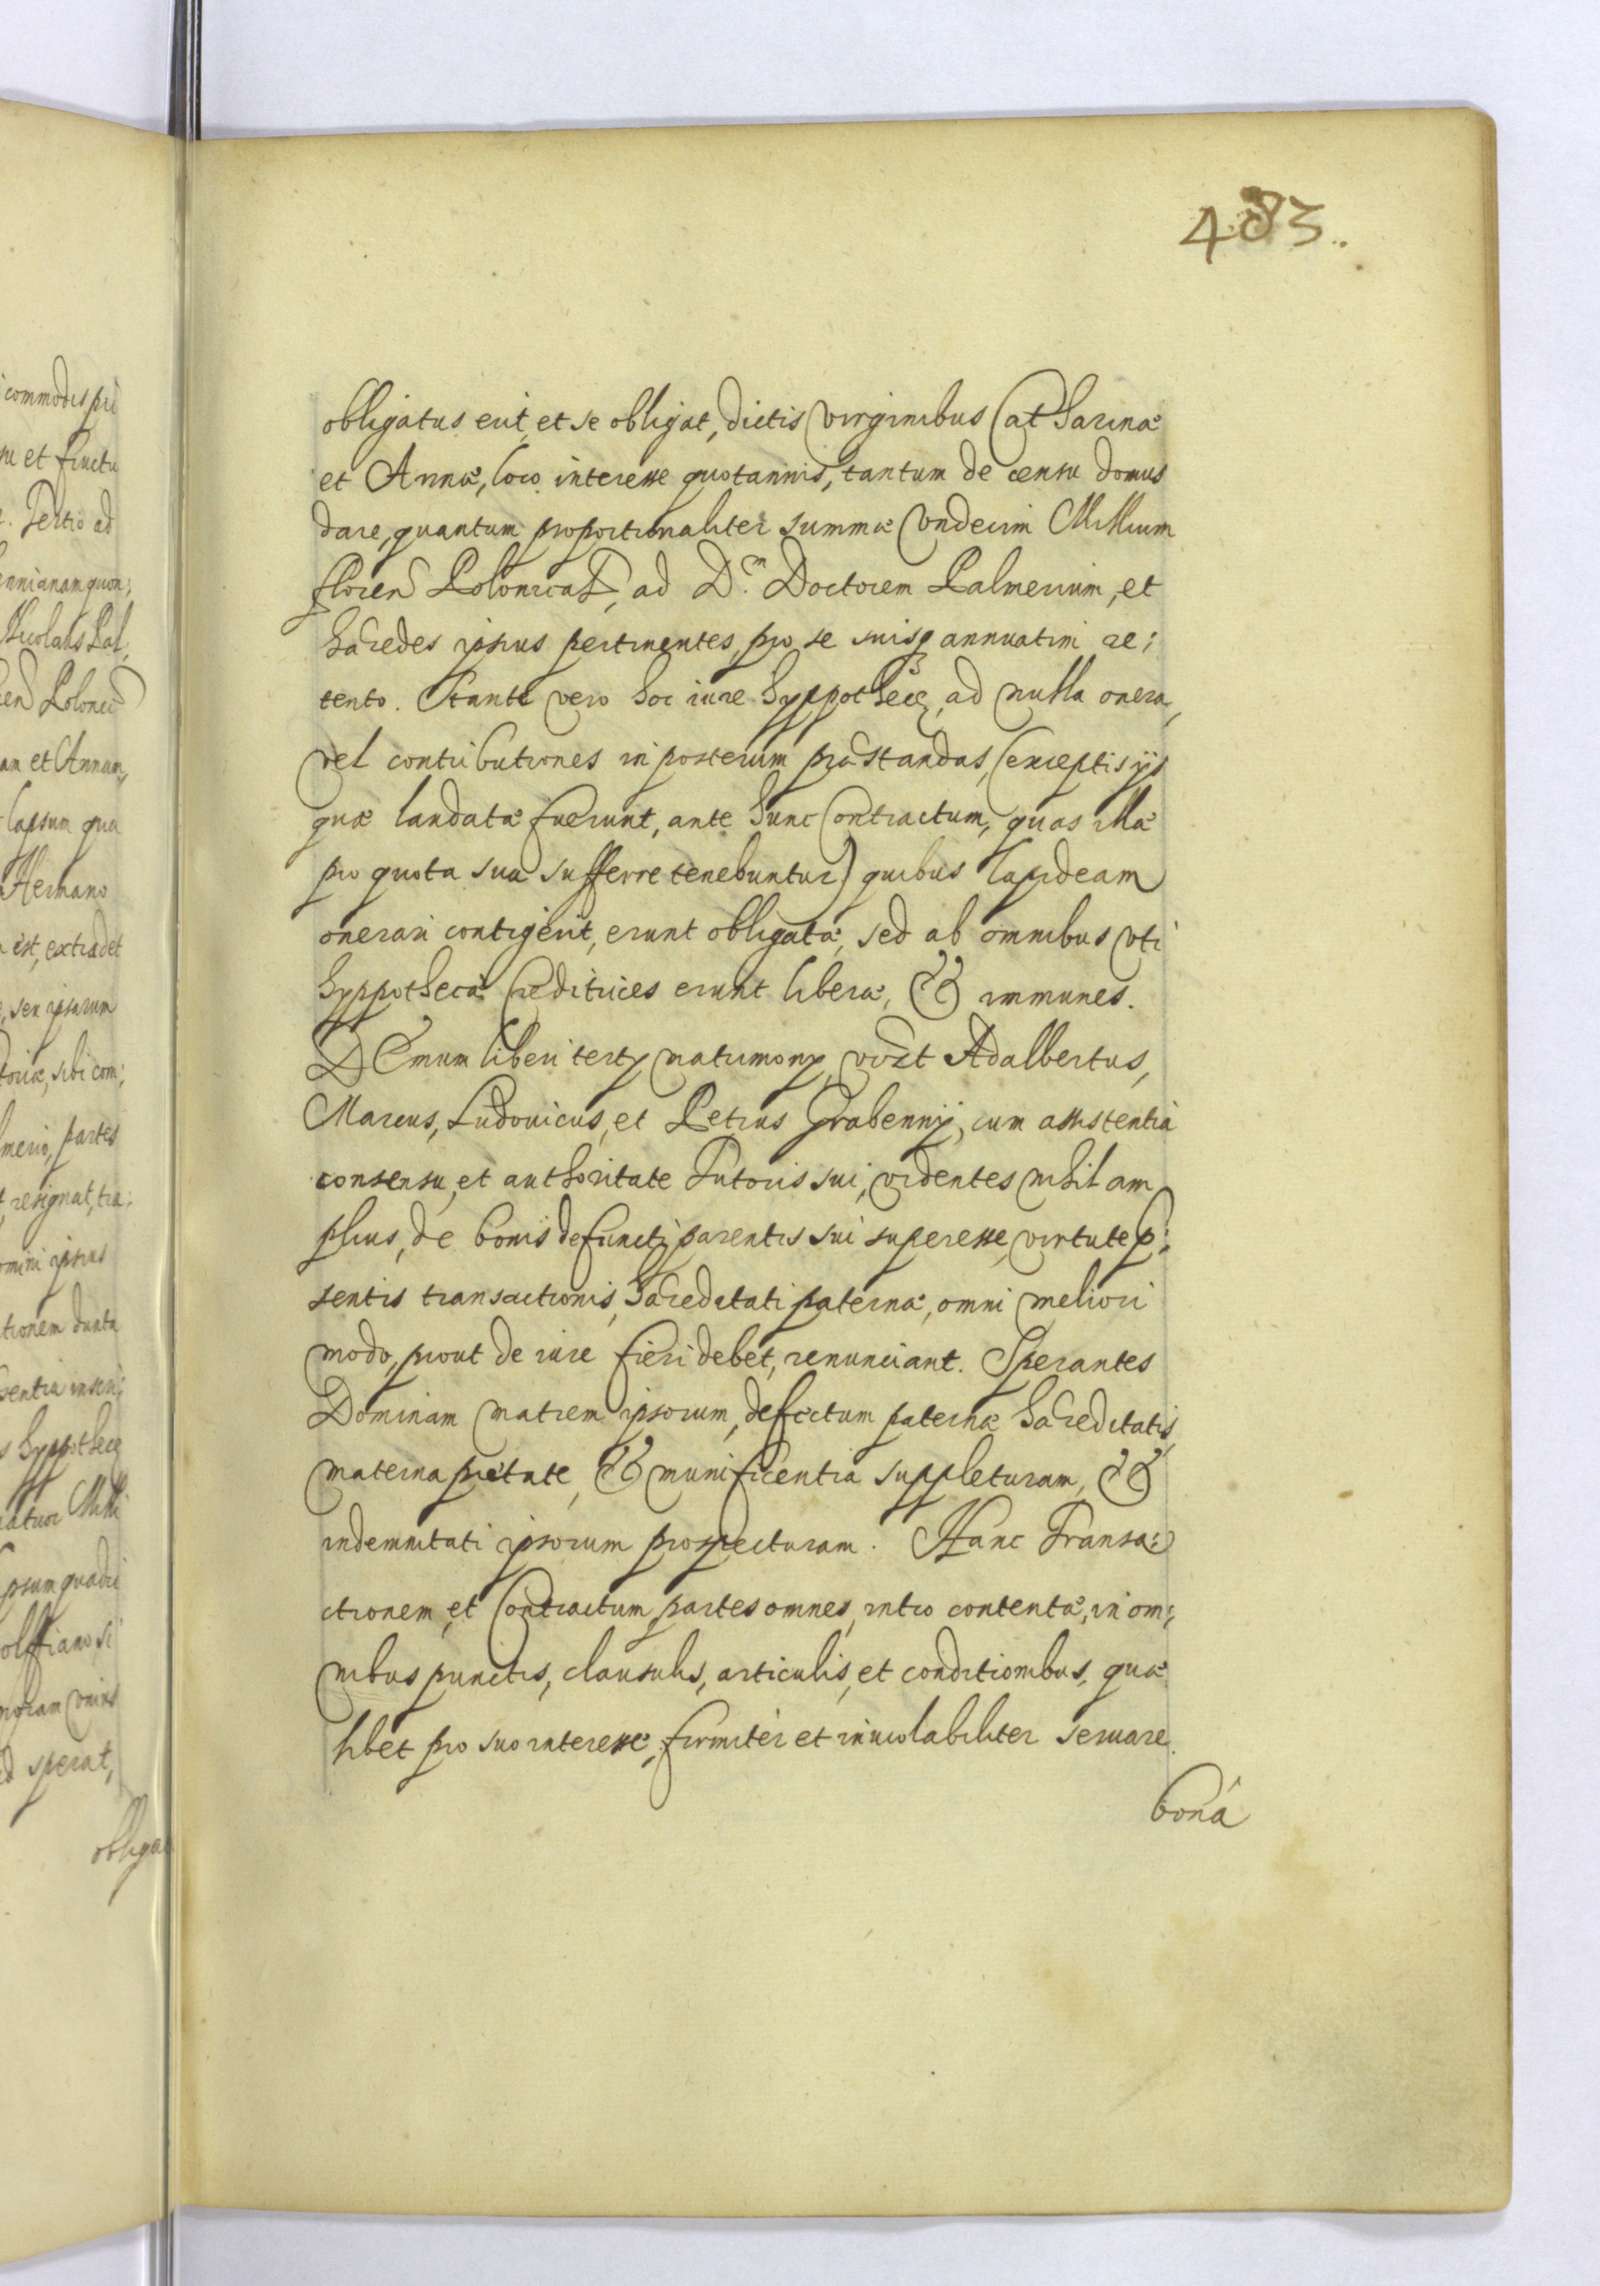 483.
commodis pri
su et fructu
. Tertio ad
ennianam quon:
Nicolaus Pal:
ren Polonic
am et Annam,
lapsum qua
Hernano
est, extradet
, seu ipsarum
toriæ, sibi com:
merio, partes
resignat, tra:
omini ipsius
tionem
sentia inscri:
s hyppothecę
uatuor Milli
ipsum quadri
si
moriam unius
d sperat,
obligat
obligatus erit, et se obligat, dictis virginibus Catharinæ
et Annæ, loco interesse quotannis, tantum de censu domus
dare, quantum proportionaliter summæ Undecim Millium
floren Polonical, ad D.m Doctorem Palmerium, et
hæredes ipsius pertinentes, pro se suisq annuatim re:
tento. Stante vero hoc iure hyppothecę, ad nulla onera,
vel contributiones in posterum præstandas, (exceptis ijs
quæ laudatæ fuerunt, ante hunc Contractum, quas illæ
pro quota sua sufferre tenebuntur) quibus lapideam
onerari contigerit, erunt obligatæ, sed ab omnibus uti
hyppothecæ Creditrices erunt liberæ, & immunes.
DEmum liberi tertÿ matrimonÿ, vizt Adalbertus,
Marcus, Ludovicus, et Petrus Grabennÿ, cum assistentia
consensu, et authoritate Tutoris sui, videntes nihil am
plius, de bonis defuncti parentis sui superesse, virtute p:
sentis transactionis, hæreditati paternæ, omni meliori
modo, prout de iure fieri debet, renunciant. Sperantes
Dominam matrem ipsorum, defectum paternæ hæreditatis,
materna pietate, & munificentia suppleturam, &
indemnitati ipsorum prospecturam. Hanc Transa:
ctionem, et Contractum partes omnes, intro contentæ, in om:
nibus punctis, clausulis, articulis, et conditionibus, quæ
libet pro suo interesse, firmiter et inviolabiliter servare
boná